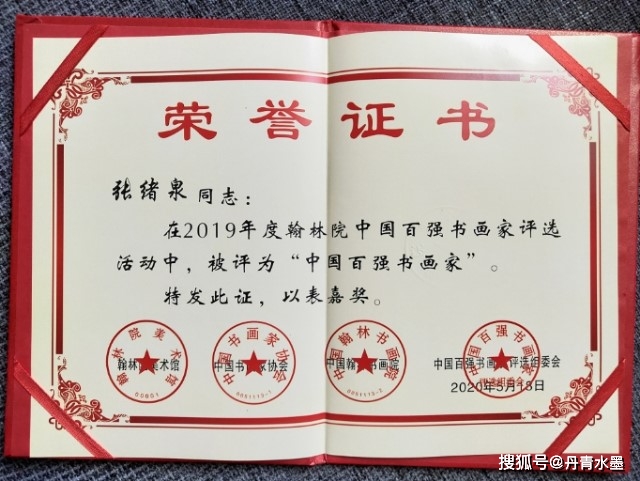 荣誉证书
张绪泉 同志：
在2019年度翰林院中国百强书画家评选
活动中，被评为“中国百强书画家”。
特发此证，以表嘉奖。
翰林院美术馆 中国书画家协会 中国翰林书画院 中国百强书画家评选组委会
2020年5月18日
搜狐号@丹青水墨